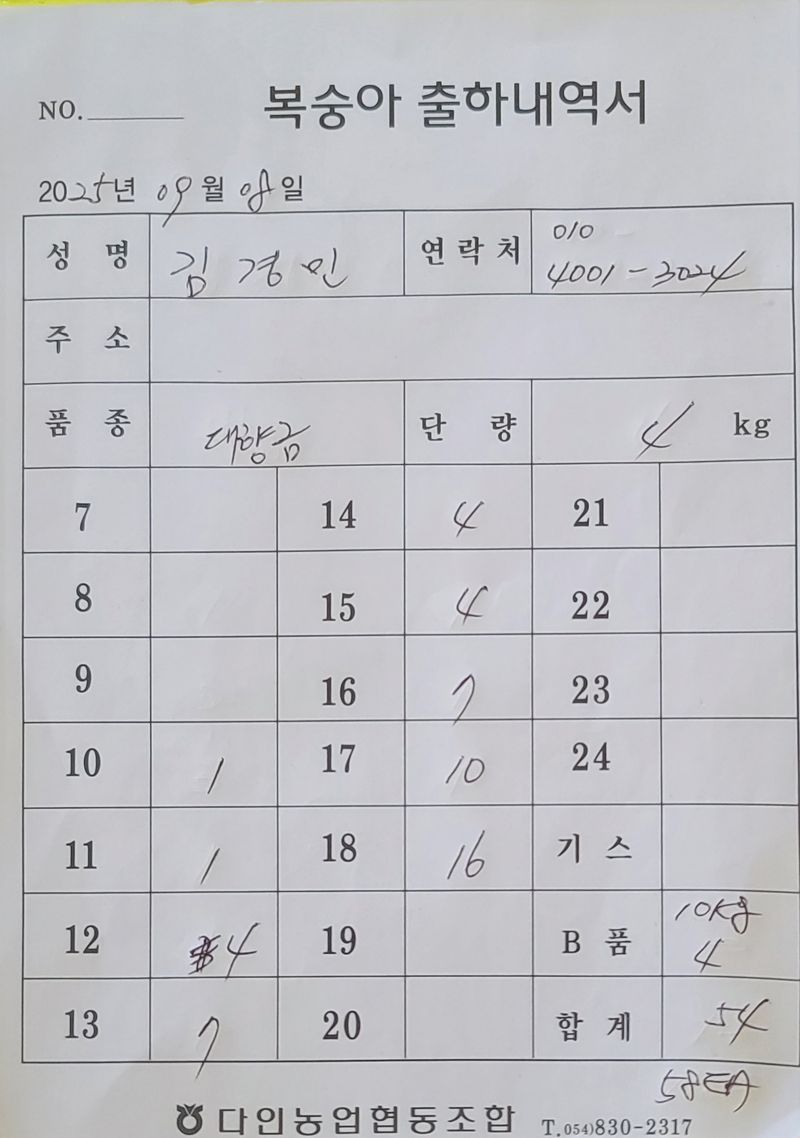 NO. 복숭아 출하내역서
2025년 09월 08일
성 명 김경민 연락처 010 4001-3024
주 소
품 종 대향금 단 량 4 kg
7 14 4 21
8 15 4 22
9 16 7 23
10 1 17 10 24
11 1 18 16 기 스
12 4 19 B 품 10Kg 4
13 7 20 합 계 54
58EA
다인농업협동조합 T.054)830-2317